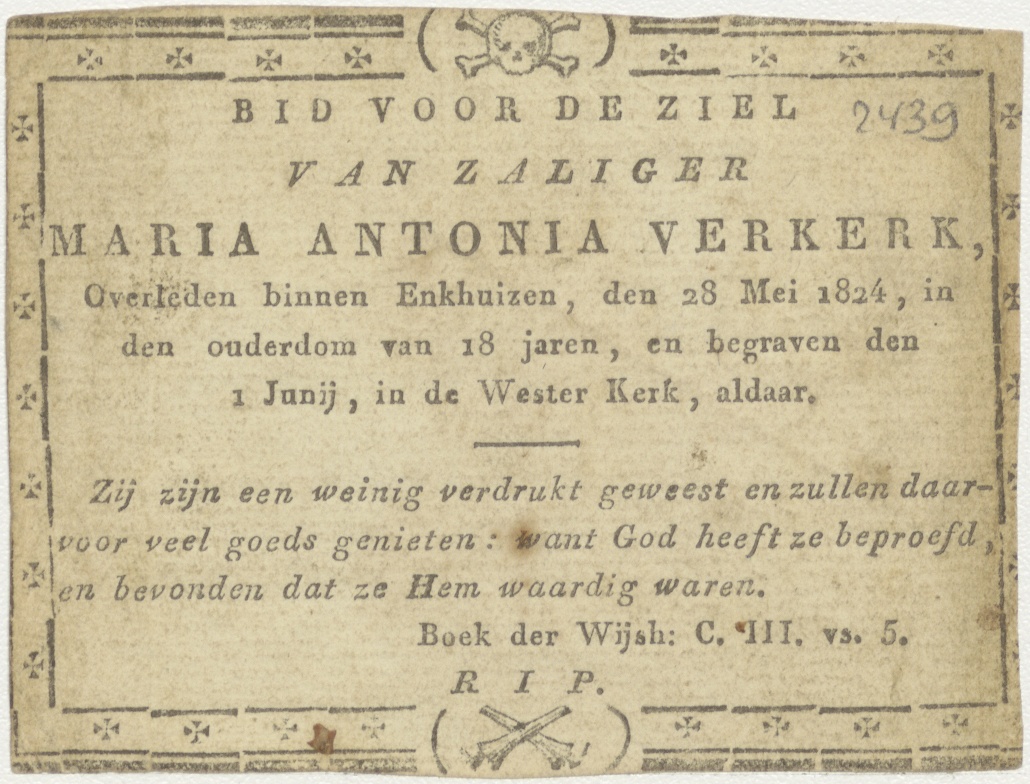 BID VOOR DE ZIEL 2439
VAN ZALIGER
MARIA ANTONIA VERKERK,
Overleden binnen Enkhuizen, den 28 Mei 1824, in
den ouderdom van 18 jaren, en begraven den
1 Junij, in de Wester Kerk, aldaar.
Zij zijn een weinig verdrukt geweest en zullen daar-
voor veel goeds genieten: want God heeft ze beproefd,
en bevonden dat ze Hem waardig waren.
Boek der Wijsh: C. III. vs. 5.
R I P.